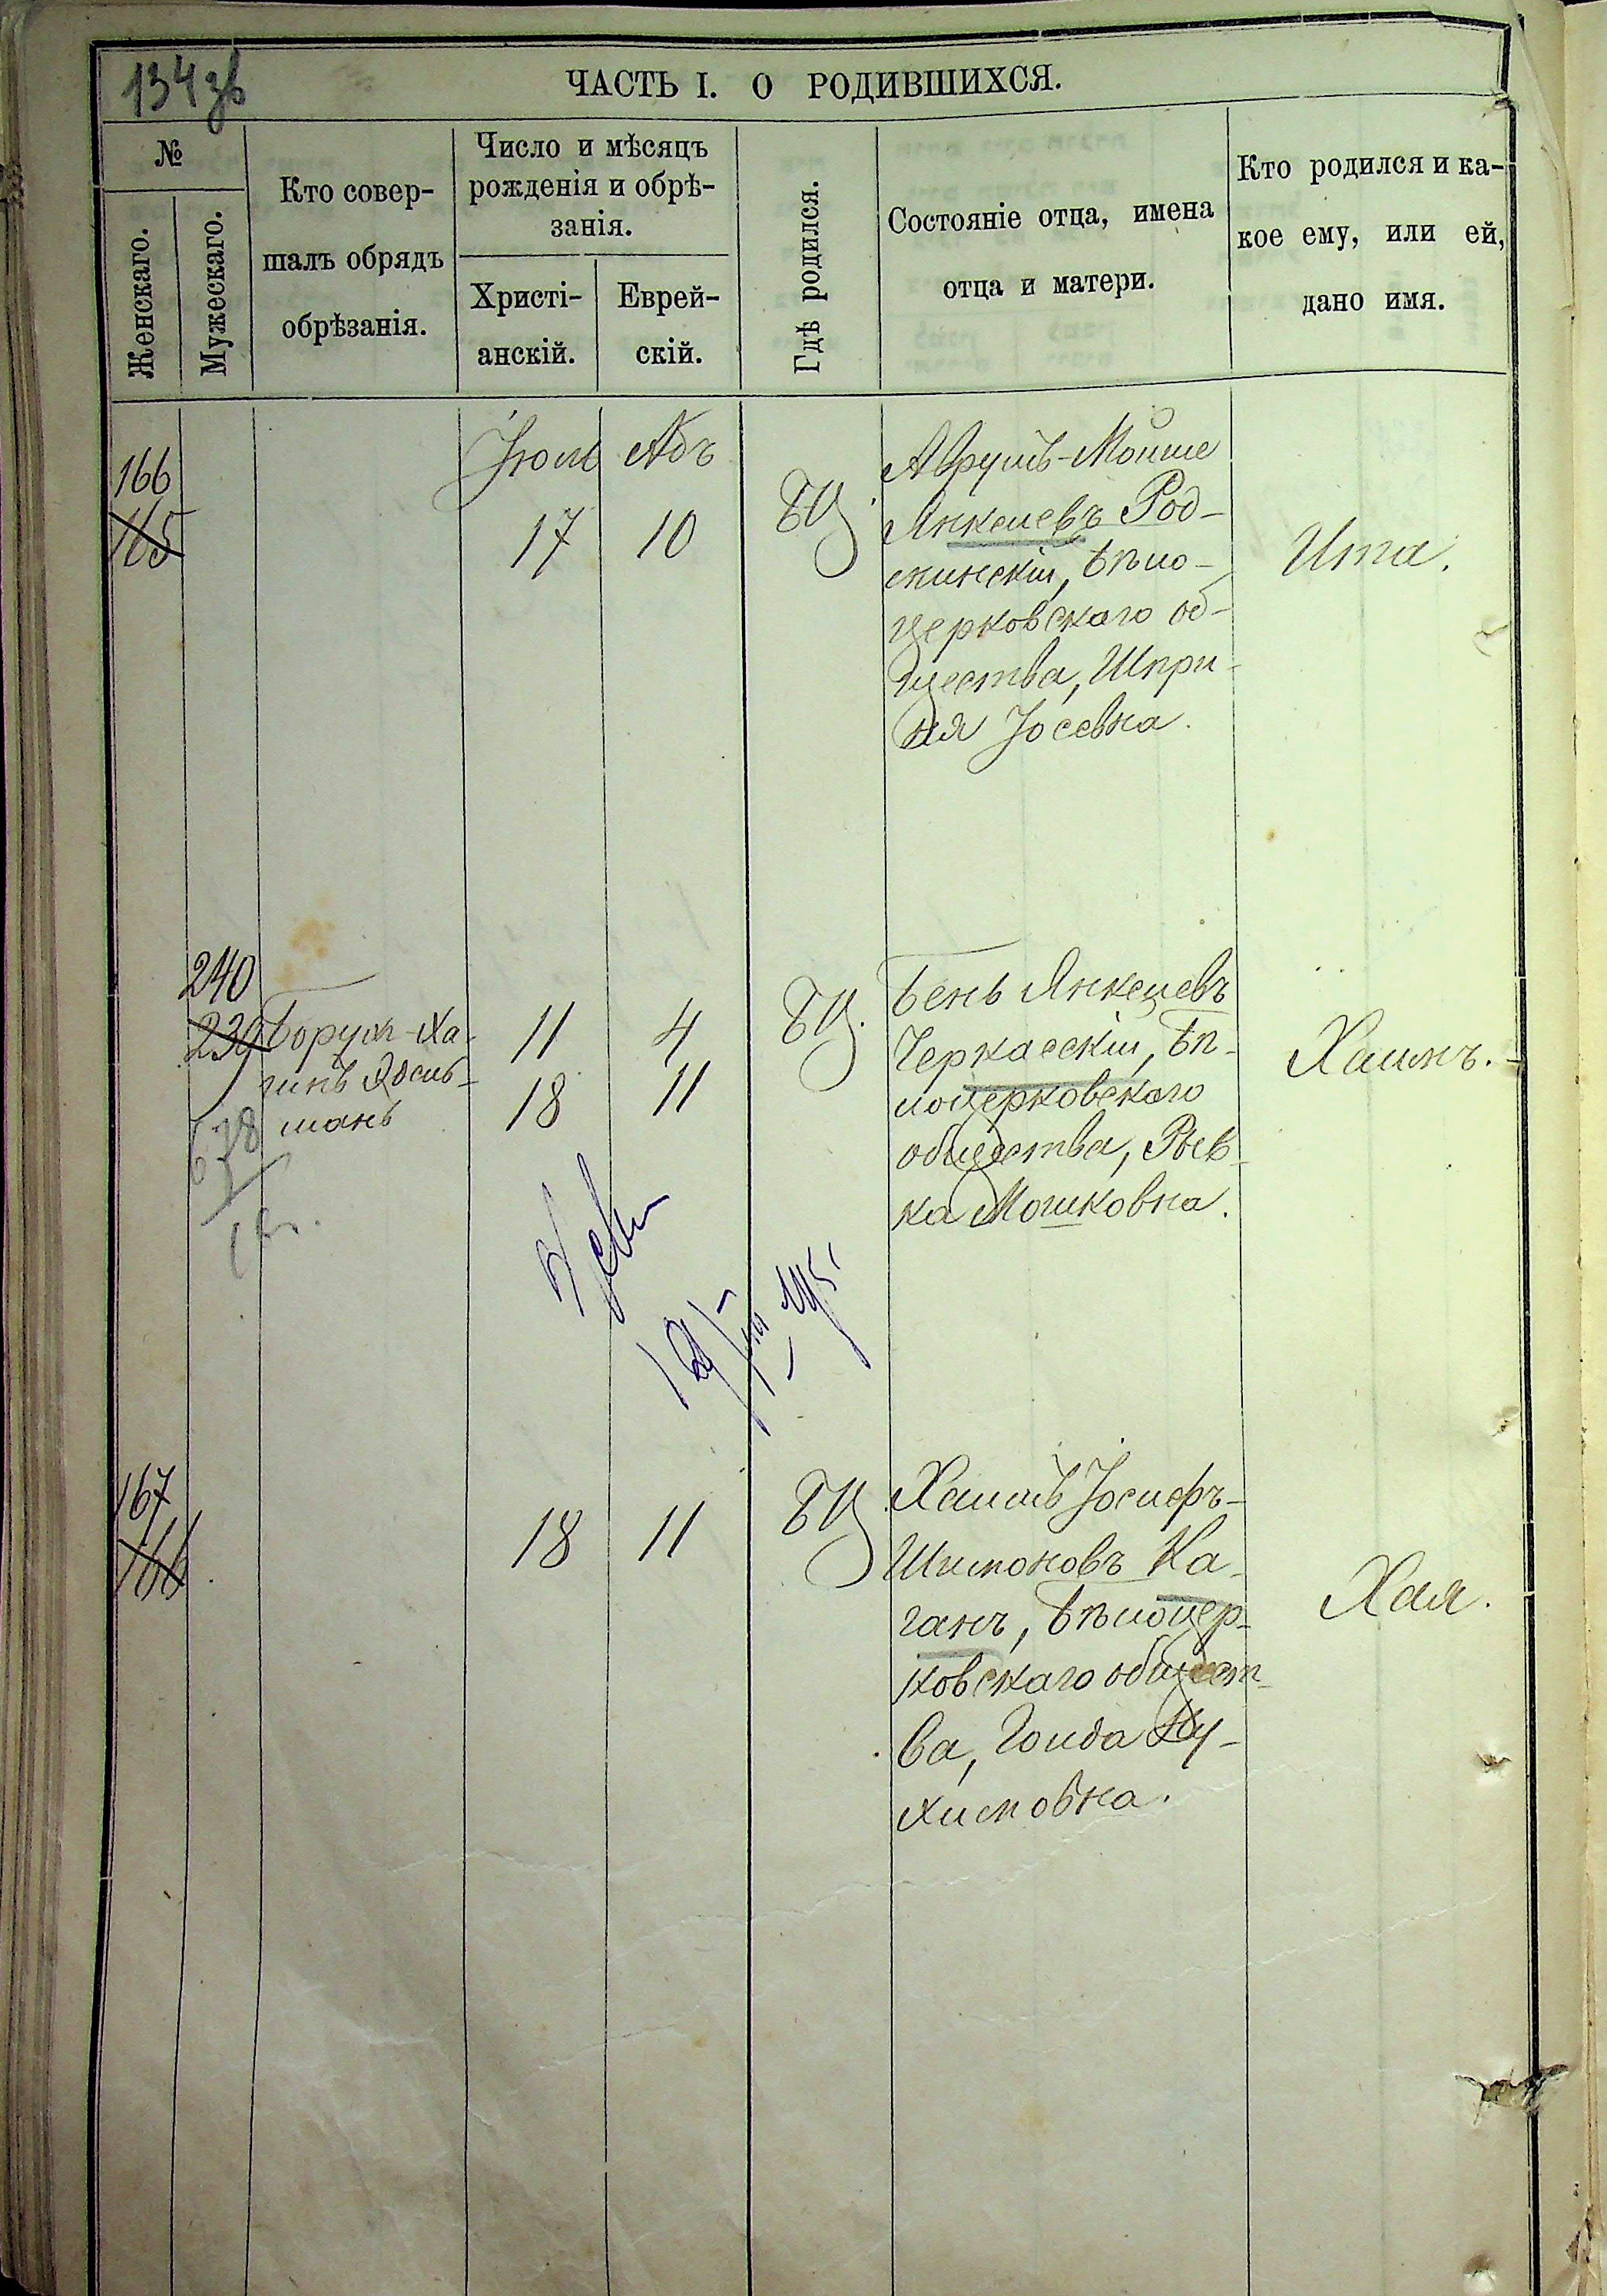 134 зв
ЧАСТЬ I. О РОДИВШИХСЯ.
№
Женскаго.
Мужескаго.
Кто совер-
шалъ обрядъ
обрѣзанія.
Число и мѣсяцъ
рожденія и обрѣ-
занія.
Христі-
анскій.
Еврей-
скій.
Гдѣ родился.
Состояніе отца, имена
отца и матери.
Кто родился и ка-
кое ему, или ей,
дано имя.
Іюль Абъ
166
165
17 10
БЦ.
Аврумъ-Мойше
Янкелевъ Род-
минскій, Бѣло-
церковскаго об-
щества, Шпри-
ня Іосевна.
Ита.
240
239
Борухъ-Ха-
11 4
18 11
БЦ.
Бень Янкелевъ
Черкасскій, Бѣ-
лоцерковскаго
общества, Рыв-
ка Мошковна.
Хаимъ.
167
166
18 11
БЦ.
Хаимъ Іосифъ-
Шимоновъ Ка-
ганъ, Бѣлоцер-
ковскаго общест-
ва, Голда Ну-
химовна.
Хая.